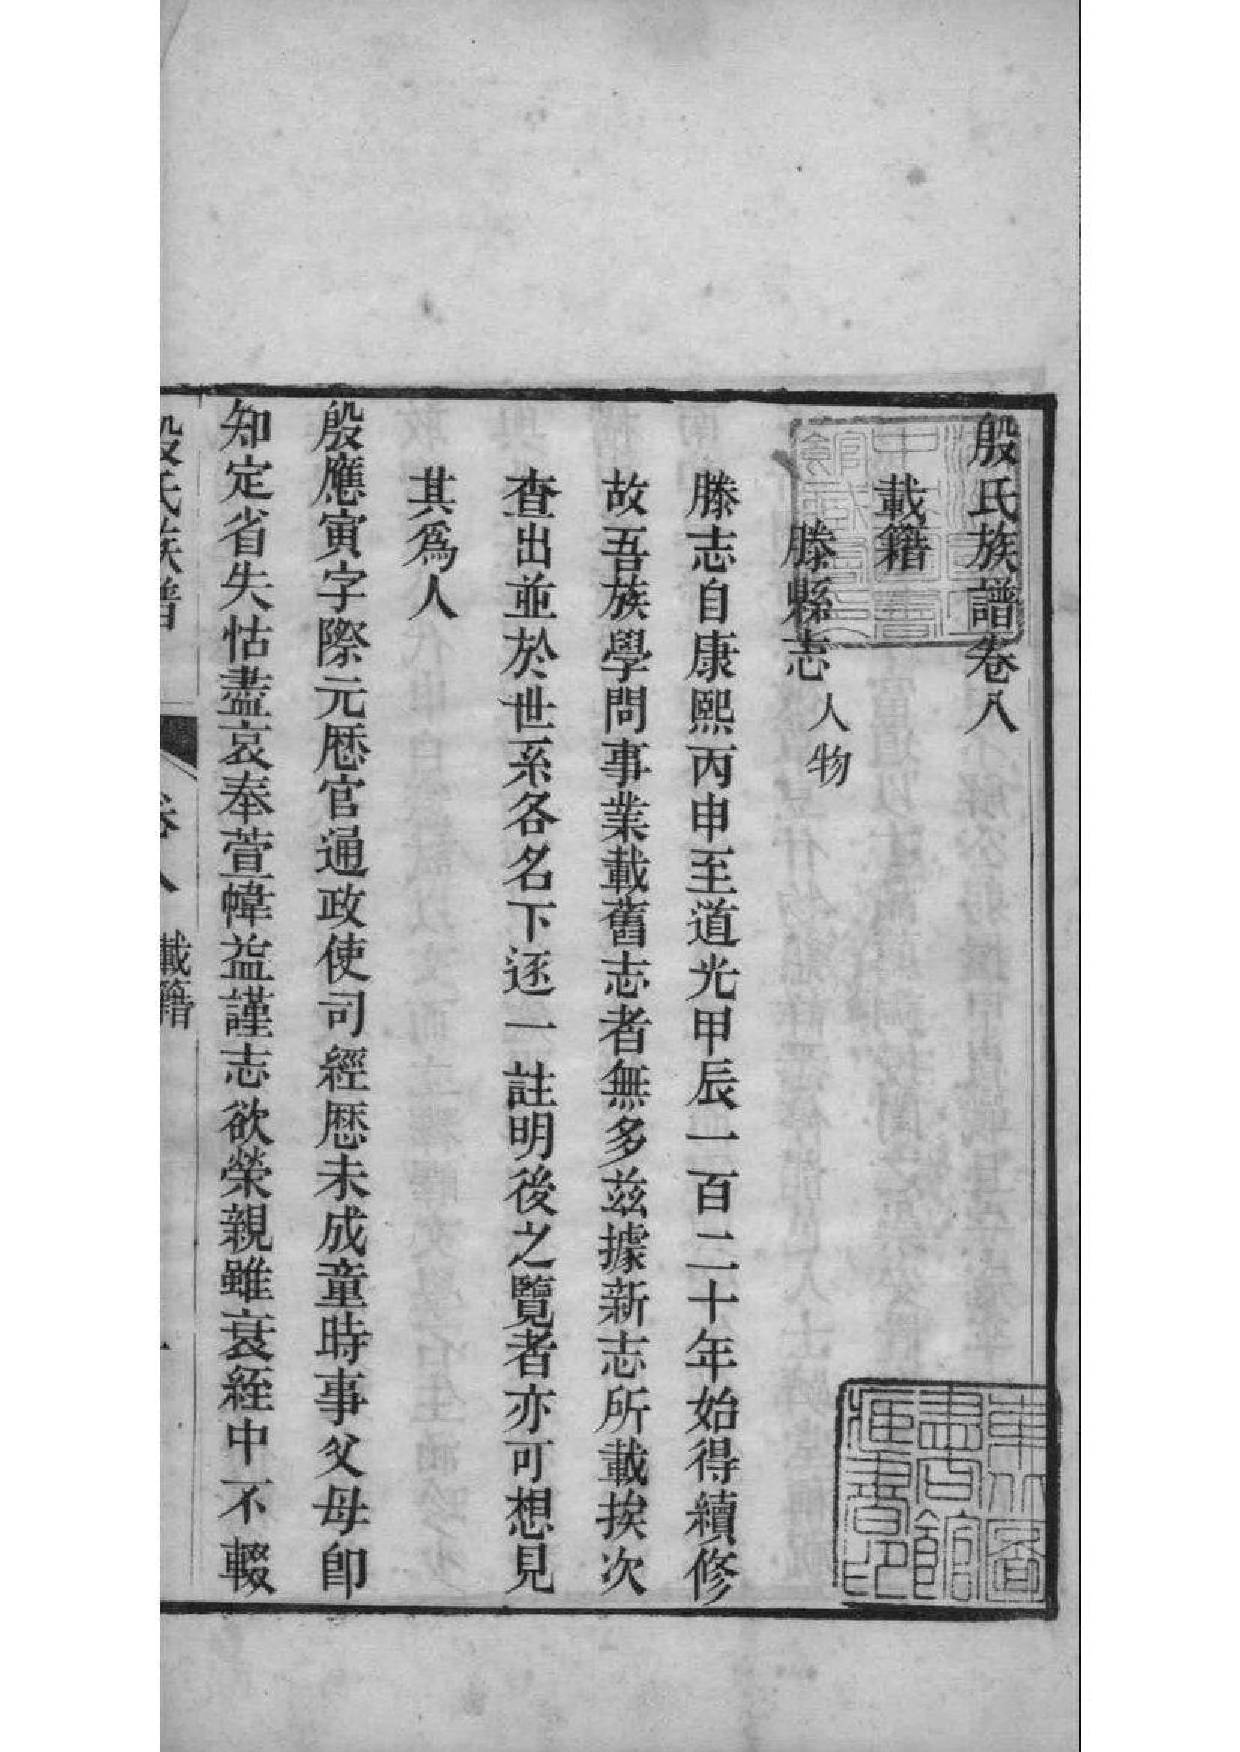 殷氏族譜卷八
載籍
滕縣志人物
滕志自康熙丙申至道光甲辰一百二十年始得續修
故吾族學問事業載舊志者無多茲據新志所載挨次
查出並於世系各名下逐一註明後之覽者亦可想見
其爲人
殷應寅字際元厯官通政使司經厯未成童時事父母卽
知定省失怙盡哀奉萱幃益謹志欲榮親雖衰絰中不輟
殷氏族譜
卷八
載籍
一